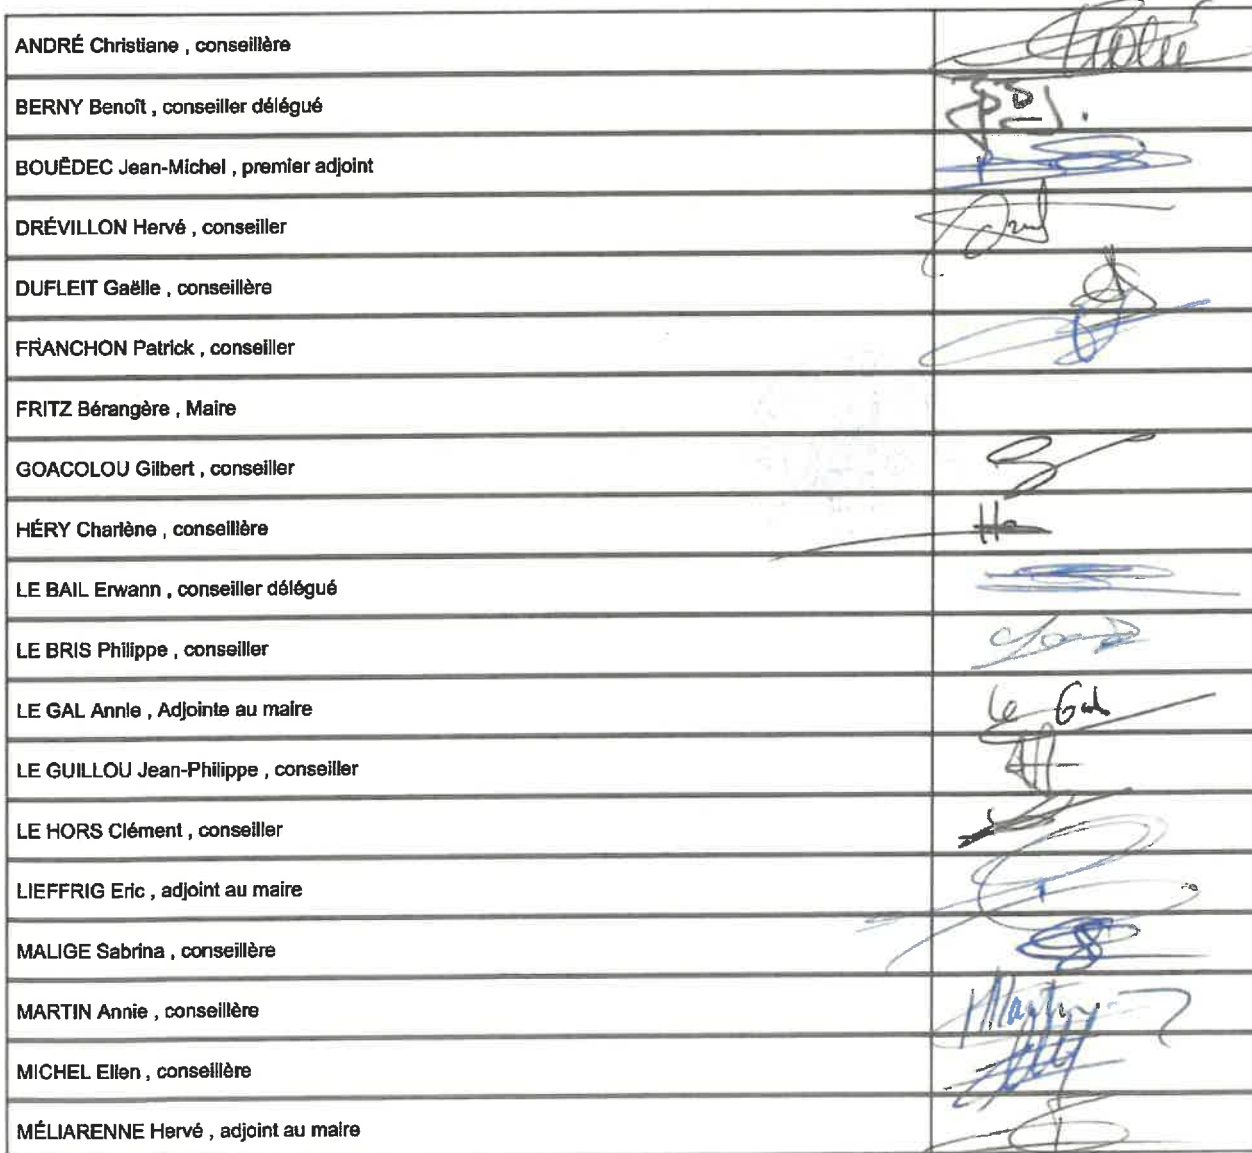 ANDRÉ Christiane , conseillère
BERNY Benoît , conseiller délégué
BOUËDEC Jean-Michel , premier adjoint
DRÉVILLON Hervé , conseiller
DUFLEIT Gaëlle , conseillère
FRANCHON Patrick , conseiller
FRITZ Bérangère , Maire
GOACOLOU Gilbert , conseiller
HÉRY Charlène , conseillère
LE BAIL Erwann , conseiller délégué
LE BRIS Philippe , conseiller
LE GAL Annie , Adjointe au maire Le Gal
LE GUILLOU Jean-Philippe , conseiller
LE HORS Clément , conseiller
LIEFFRIG Eric , adjoint au maire
MALIGE Sabrina , conseillère
MARTIN Annie , conseillère
MICHEL Ellen , conseillère
MÉLIARENNE Hervé , adjoint au maire